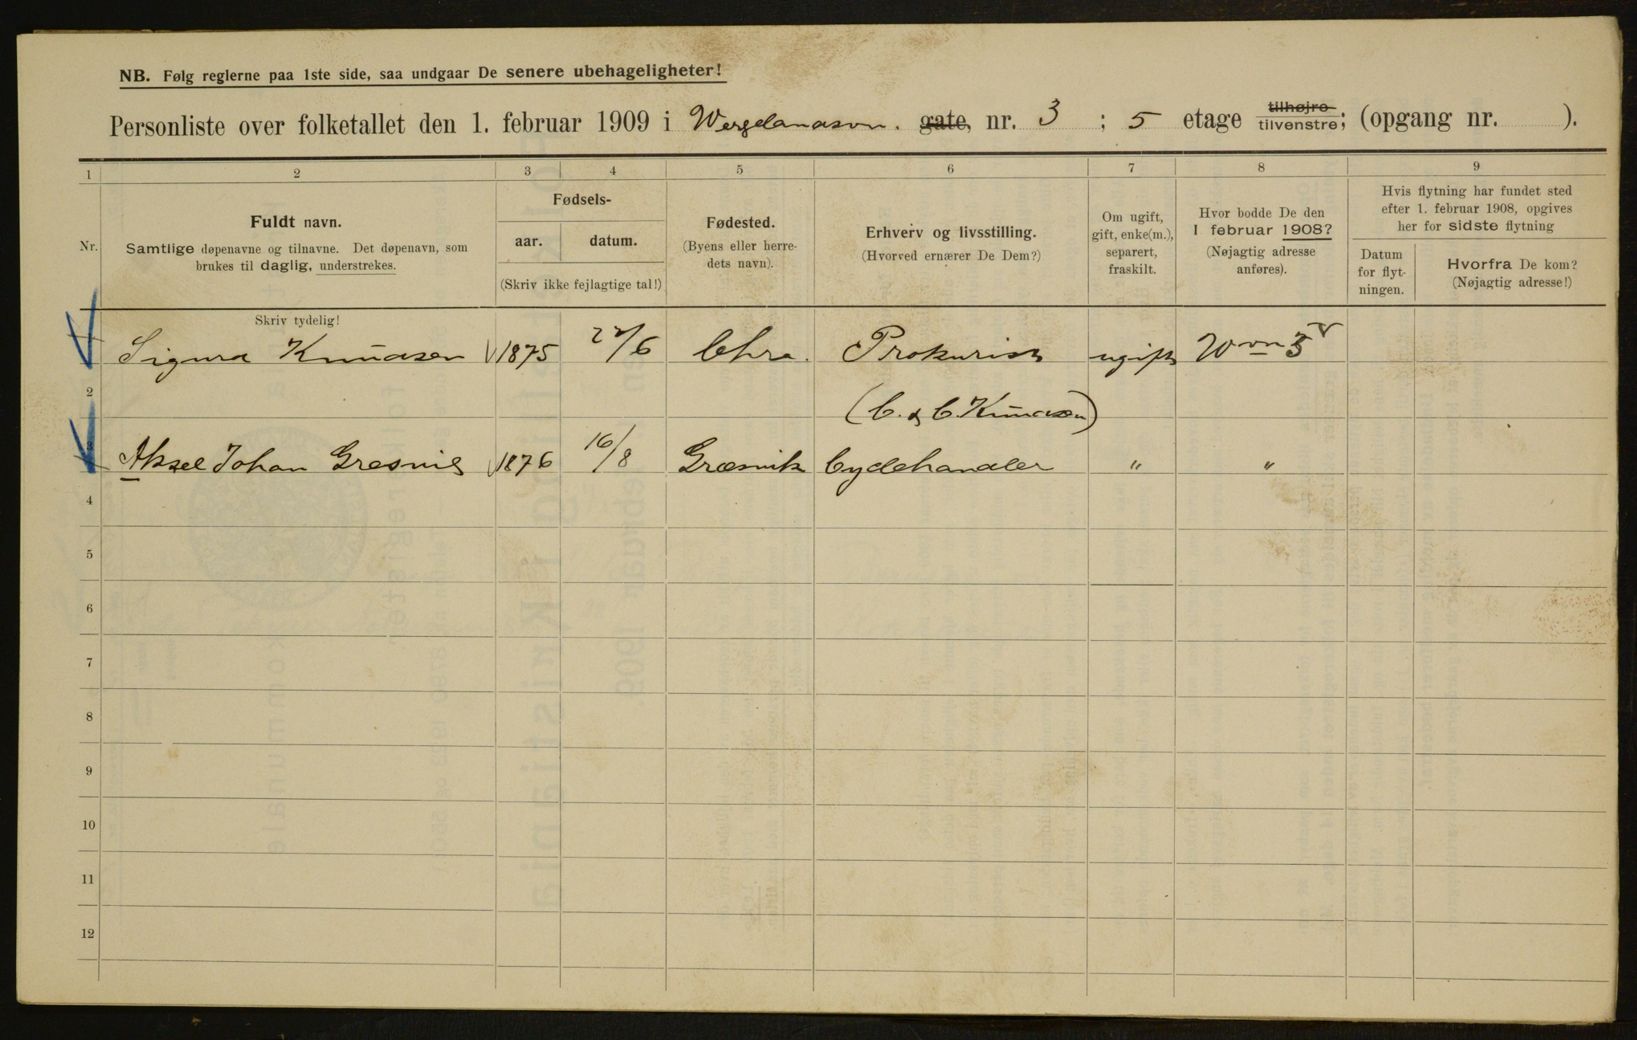 NB. Følg reglerne paa 1ste side, saa undgaar De senere ubehageligheter!
Personliste over folketallet den 1. februar 1909 i Wergelandsvn. gate, nr. 3 ; 5 etage tilhøjre tilvenstre; (opgang nr. ).
1 2 3 4 5 6 7 8 9
Nr.
Fuldt navn.
Samtlige døpenavne og tilnavne. Det døpenavn, som
brukes til daglig, understrekes.
Fødsels-
aar. datum.
(Skriv ikke fejlagtige tal!)
Fødested.
(Byens eller herre-
dets navn).
Erhverv og livsstilling.
(Hvorved ernærer De Dem?)
Om ugift,
gift, enke(m.),
separert,
fraskilt.
Hvor bodde De den
1 februar 1908?
(Nøjagtig adresse
anføres).
Hvis flytning har fundet sted
efter 1. februar 1908, opgives
her for sidste flytning
Datum
for flyt-
ningen.
Hvorfra De kom?
(Nøjagtig adresse!)
Skriv tydelig!
Sigurd Knudsen 1875 /6 Chra. Prokurist ugift Wvn 3
2 (C. & C. Knudsen)
3 Aksel Johan Gresvig 1876 16/8 Græsvik Cyclehandler " "
4
5
6
7
8
9
10
11
12